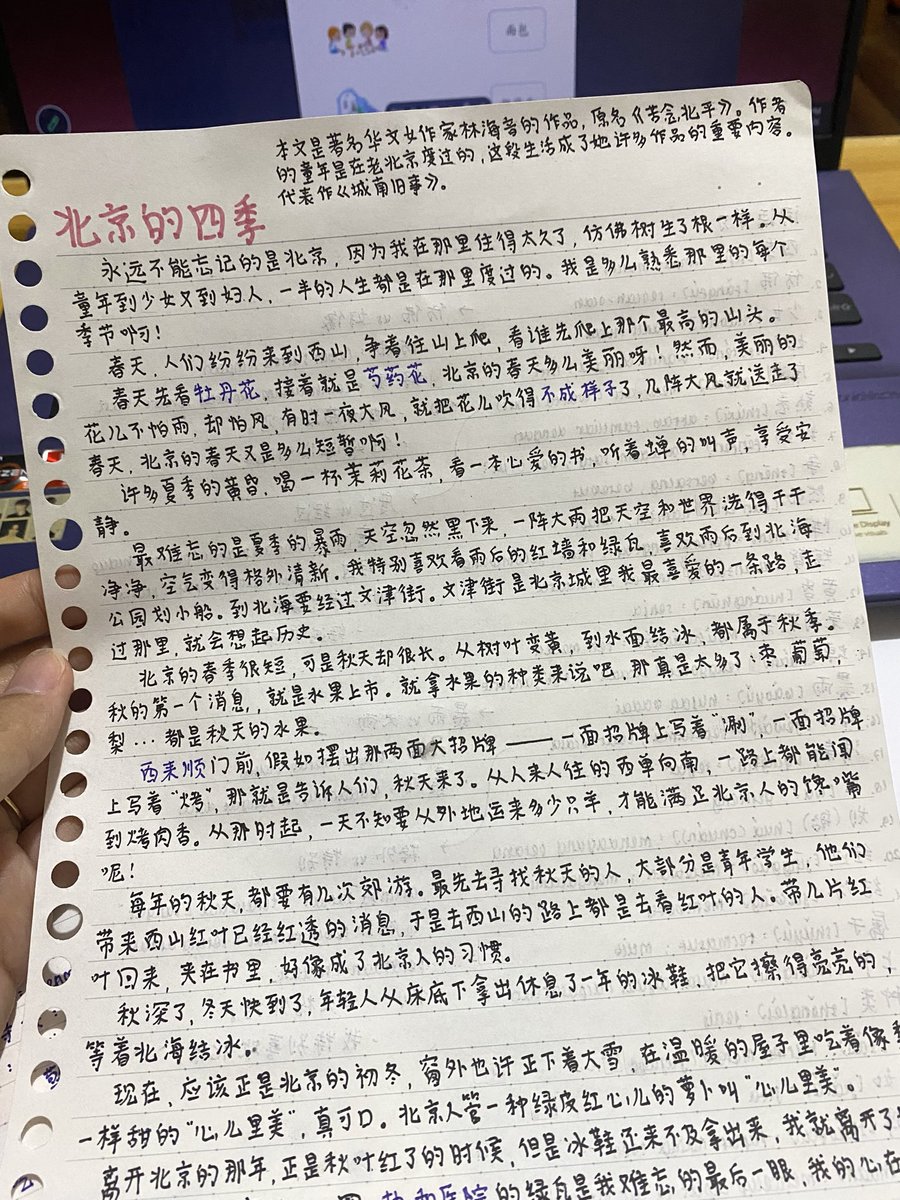 本文是著名华文女作家林海音的作品，原名《苦念北平》。作者
的童年是在老北京度过的，这段生活成了她许多作品的重要内容。
代表作《城南旧事》。
北京的四季
永远不能忘记的是北京，因为我在那里住得太久了，仿佛树生了根一样。从
童年到少女又到妇人，一半的人生都是在那里度过的。我是多么熟悉那里的每个
季节啊！
春天，人们纷纷来到西山，争着往山上爬，看谁先爬上那个最高的山头。
春天先看牡丹花，接着就是芍药花，北京的春天多么美丽呀！然而，美丽的
花儿不怕雨，却怕风，有时一夜大风，就把花儿吹得不成样子了，几阵大风就送走了
春天，北京的春天又是多么短暂啊！
许多夏季的黄昏，喝一杯茉莉花茶，看一本心爱的书，听着蝉的叫声，享受安
静。
最难忘的是夏季的暴雨，天空忽然黑下来，一阵大雨把天空和世界洗得干干
净净，空气变得格外清新。我特别喜欢看雨后的红墙和绿瓦，喜欢雨后到北海
公园划小船。到北海要经过文津街。文津街是北京城里我最喜爱的一条路，走
过那里，就会想起历史。
北京的春季很短，可是秋天却很长。从树叶变黄，到水面结冰，都属于秋季。
秋的第一个消息，就是水果上市。就拿水果的种类来说吧，那真是太多了：枣，葡萄，
梨…都是秋天的水果。
西来顺门前，假如摆出那两面大招牌——一面招牌上写着“涮”一面招牌
上写着“烤”，那就是告诉人们，秋天来了。从人来人往的西单向南，一路上都能闻
到烤肉香。从那时起，一天不知要从外地运来多少只羊，才能满足北京人的馋嘴
呢！
每年的秋天，都要有几次郊游。最先去寻找秋天的人，大部分是青年学生，他们
带来西山红叶已经红透的消息，于是去西山的路上都是去看红叶的人。带几片红
叶回来，夹在书里，好像成了北京人的习惯。
秋深了，冬天快到了，年轻人从床底下拿出休息了一年的冰鞋，把它擦得亮亮的，
等着北海结冰。
现在，应该正是北京的初冬，窗外也许正下着大雪，在温暖的屋子里吃着像
一样甜的“心儿里美”，真可口。北京人管一种绿皮红心儿的萝卜叫“心儿里美”。
离开北京的那年，正是秋叶红了的时候，但是冰鞋还来不及拿出来，我就离开了
的绿瓦是我难忘的最后一眼，我的心在